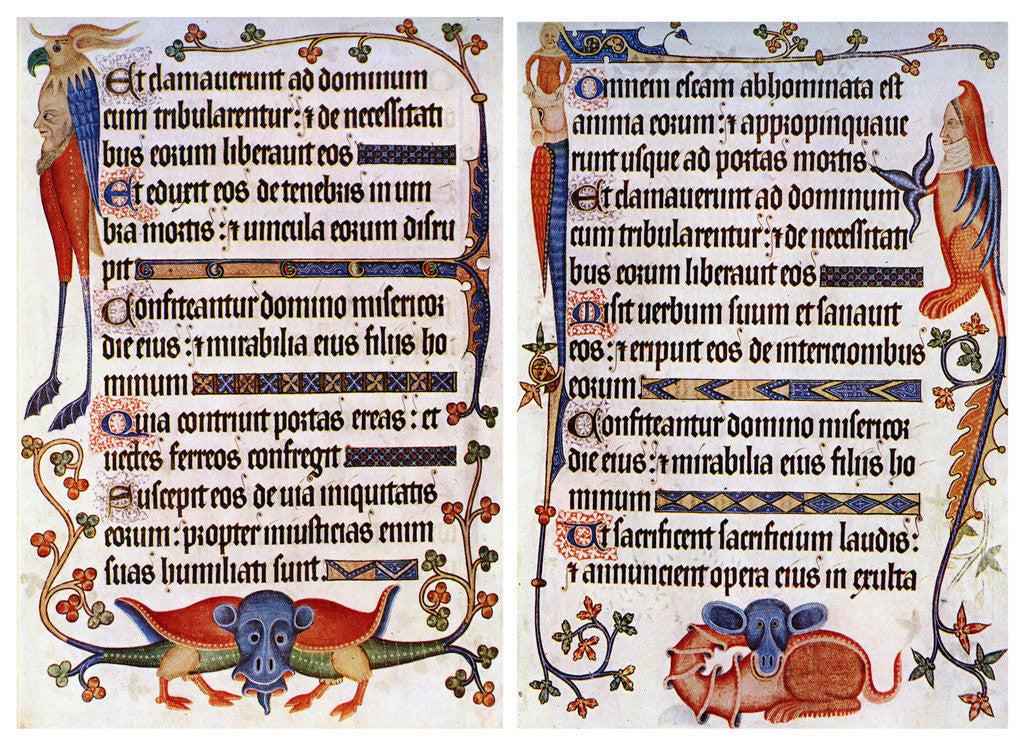 Et clamauerunt ad dominum
cum tribularentur : ⁊ de necessitati
bus eorum liberauit eos
Et eduxit eos de tenebris in um
bra mortis : ⁊ uincula eorum disru
pit
Confiteantur domino misericor
die eius : ⁊ mirabilia eius filiis ho
minum
Quia contriuit portas ereas : et
uectes ferreos confregit
Suscepit eos de uia iniquitatis
eorum : propter iniusticias enim
suas humiliati sunt.
Omnem escam abhominata est
anima eorum : ⁊ appropinquaue
runt usque ad portas mortis.
Et clamauerunt ad dominum
cum tribularentur : ⁊ de necessitati
bus eorum liberauit eos
Misit uerbum suum et sanauit
eos : ⁊ eripuit eos de intericionibus
eorum.
Confiteantur domino misericor
die eius : ⁊ mirabilia eius filiis ho
minum
Ut sacrificent sacrificium laudis :
⁊ annuncient opera eius in exulta